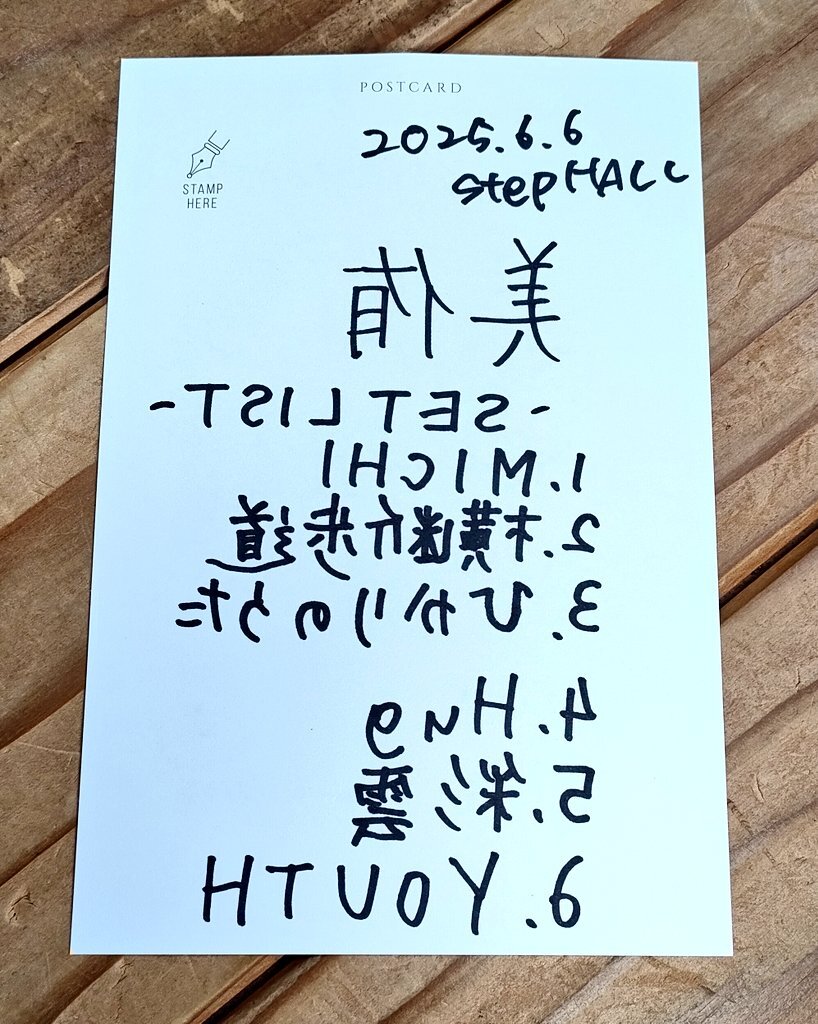 POSTCARD
2025.6.6
stepHALL
STAMP
HERE
美侑
-SETLIST-
1.MICHI
2.横断歩道
3.ひかりのうた
4.Hug
5.彩雲
6.YOUTH